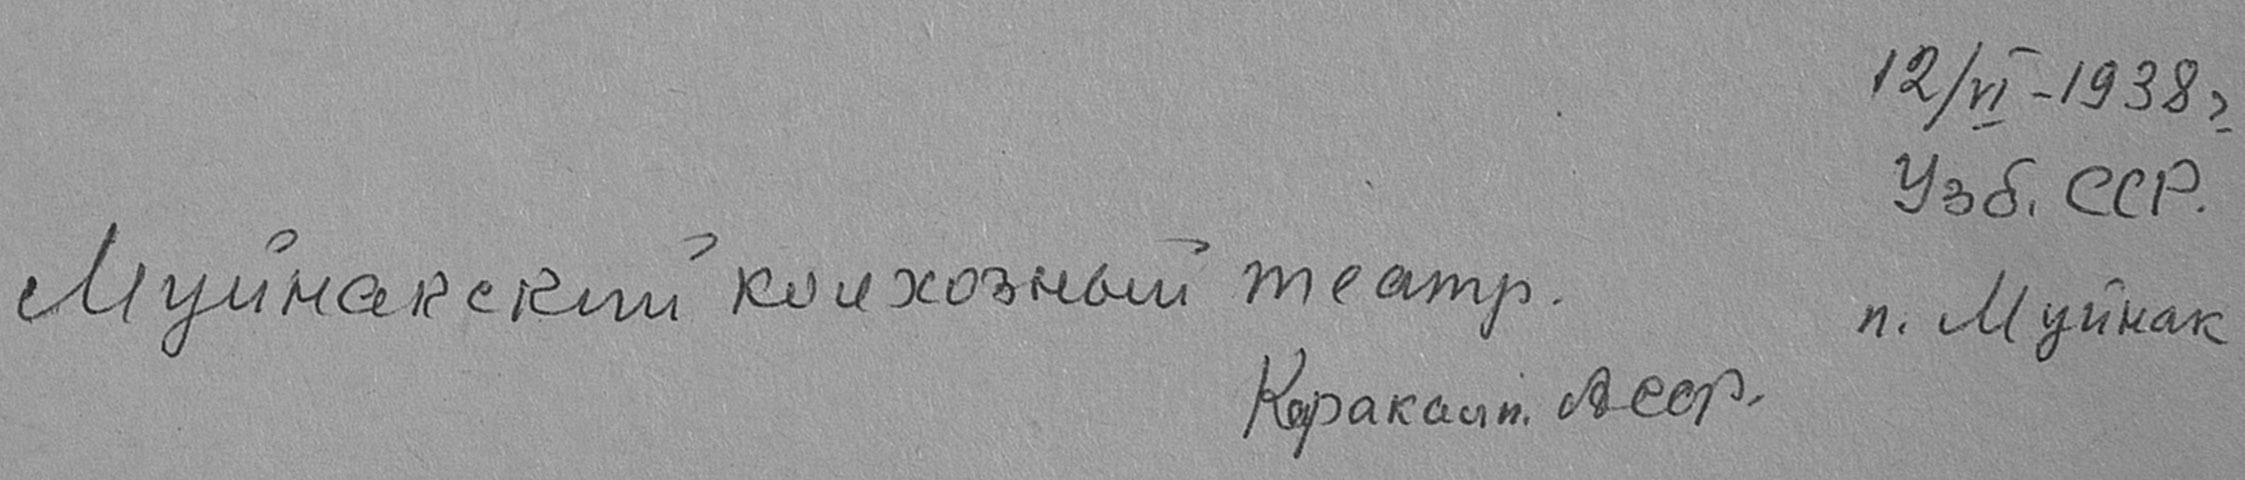 12/VI-1938г
Узб. ССР.
Муйнакский колхозный театр.
п. Муйнак
Каракалп. АССР.